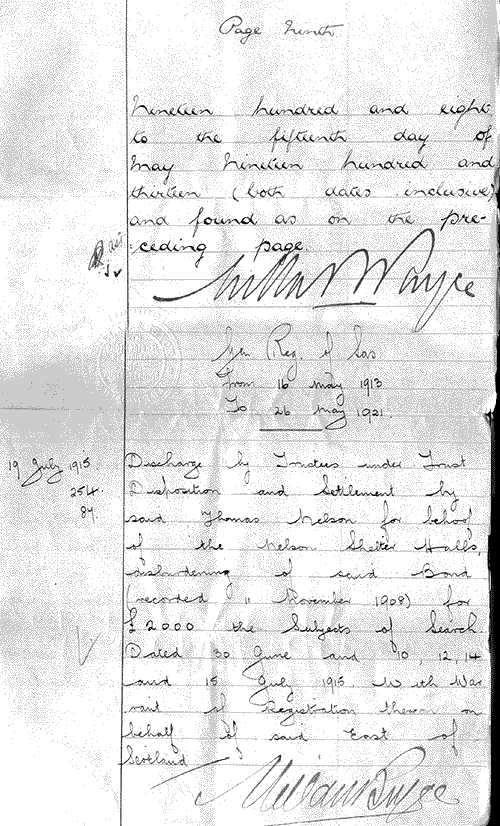 Page Ninth
Nineteen hundred and eight
to the fifteenth day of
May Nineteen hundred and
thirteen (both dates inclusive)
and found as on the pre-
:ceding page.
Gen. Reg. of Sas
From 16 May 1913
To 26 May 1921.
19 July 1915
254.
87.
Discharge by Trustees under Trust
Disposition and Settlement by
said Thomas Nelson for behoof
of the Nelson Shelter Halls,
disburdening of said Bond
(recorded 11 November 1908) for
£2000 the Subjects of Search.
Dated 30 June and 10, 12, 14
and 15 July 1915. With War
rant of Registration thereon on
behalf of said East of
Scotland